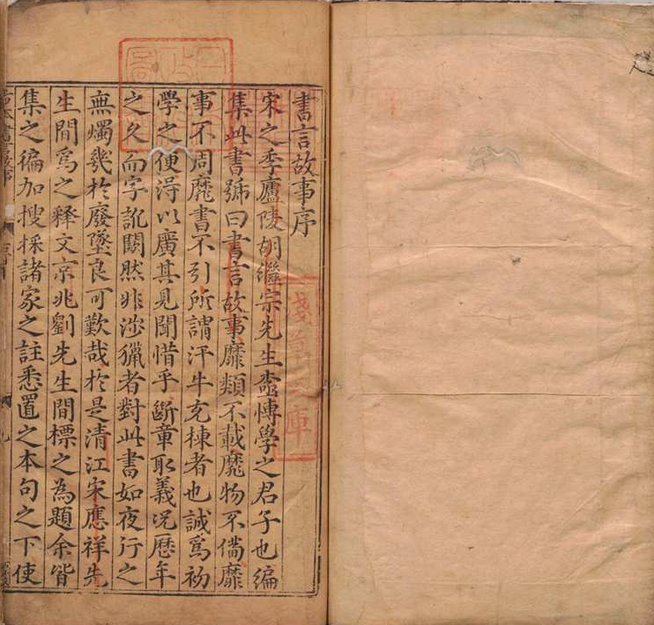 書言故事序
宋之季廬陵胡繼宗先生盍愽學之君子也編
集此書號曰書言故事靡類不載靡物不備靡
事不周靡書不引所謂汗牛充棟者也誠爲初
學之便得以廣其見聞惜乎斷章取義况歷年
之久而字訛闕然非涉獵者對此書如夜行之
無燭幾於廢墜良可歎哉於是清江宋應祥先
生間爲之釋文京兆劉先生間標之為題余皆
集之徧加搜採諸家之註悉置之本句之下使